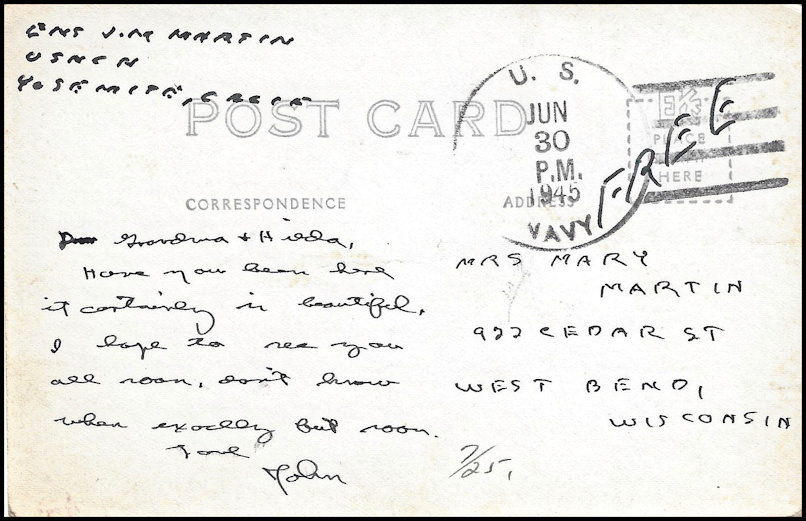 ENS J.M MARTIN
USNCH
YOSEMITE, CALIF
POST CARD
U. S.
JUN
30
P.M.
1945
NAVY
FREE
EKC
PLACE
HERE
CORRESPONDENCE
ADDRESS
Dear Grandma & Hilda,
Have you been here
it certainly is beautiful.
I hope to see you
all soon, don't know
when exactly but soon.
Love
John
MRS MARY
MARTIN
922 CEDAR ST
WEST BEND,
WISCONSIN
7/25,